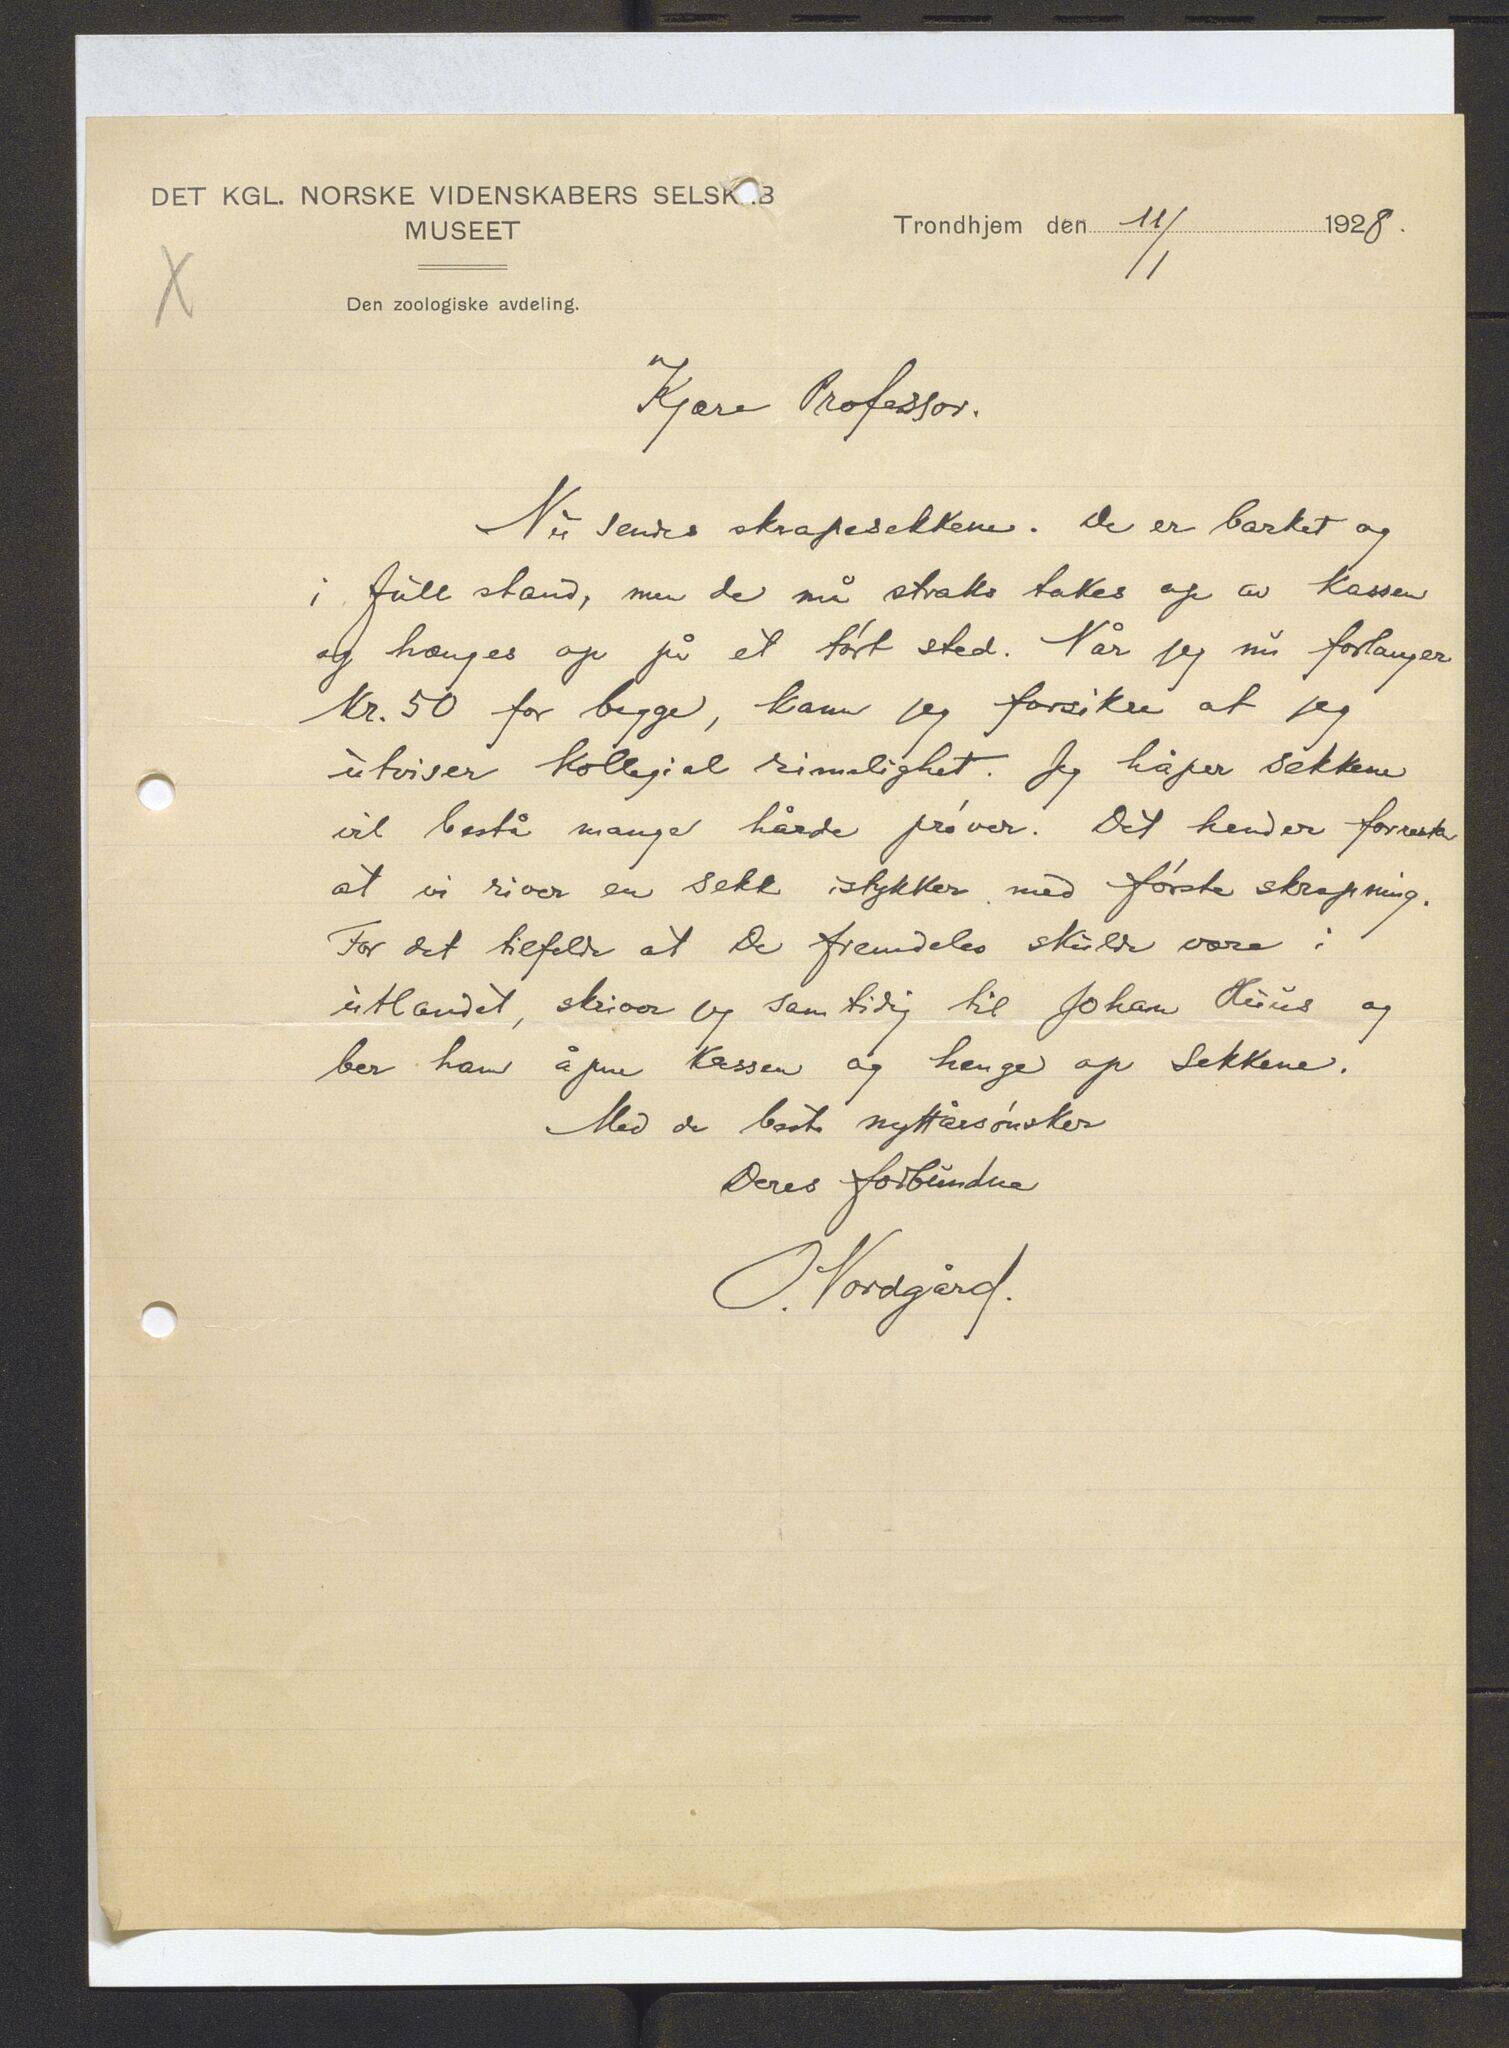 DET KGL. NORSKE VIDENSKABERS SELSKAB
MUSEET
Den zoologiske avdeling.
Trondhjem den 11/1 1928.
X
Kjære Professor.
Nu sendes skrapesekkene. De er barket og
i full stand, men de må straks takes op av kassen
og hænges op på et tørt sted. Når jeg nu forlanger
Kr. 50 for begge, kann jeg forsikre at jeg
utviser kollegial rimelighet. Jeg håper sekkene
vil bestå mange hårde prøver. Det hender forresten
at vi river en sekk istykker med første skrapning.
For det tilfelde at De fremdeles skulde være i
utlandet, skriver jeg samtidig til Johan Huus og
ber ham åpne kassen og henge op sekkene.
Med de beste nyttårsønsker
Deres forbundne
O. Nordgård.